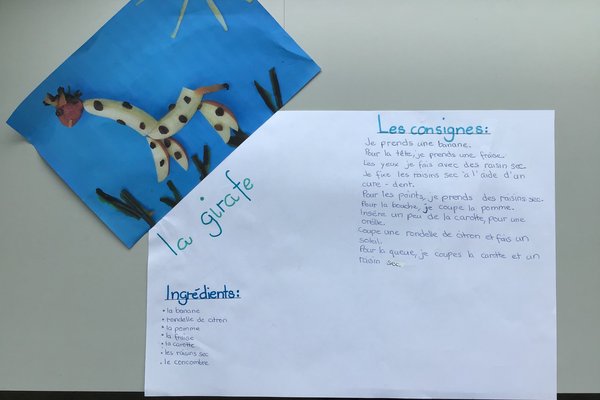 la girafe
Les consignes:
Je prends une banane.
Pour la tête, je prends une fraise.
Les yeux je fais avec des raisin sec.
Je fixe les raisins sec à l'aide d'un
cure-dent.
Pour les points, je prends des raisins sec.
Pour la bouche, je coupe la pomme.
Insère un peu de la carotte, pour une
oreille.
Coupe une rondelle de citron et fais un
soleil.
Pour la queue, je coupes la carotte et un
raisin sec.
Ingrédients:
• la banane
• rondelle de citron
• la pomme
• la fraise
• la carotte
• les raisins sec
• le concombre